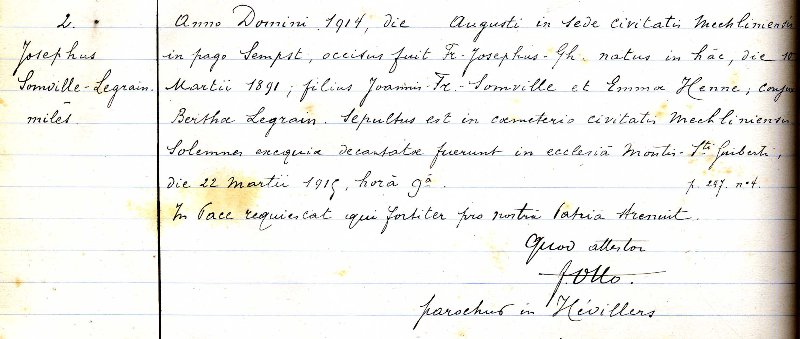 2.
Josephus
Somville-Legrain.
milēs.
Anno Domini 1914, die Augusti in sede civitatis Mechliniensis
in pago Sempst, occisus fuit Fr. Josephus-Gh. natus in hâc, die 10
Martii 1891; filius Joannis-Fr.-Somville et Emmæ Henne; conjux
Berthæ Legrain. Sepultus est in cœmeterio civitatis Mechliniensis
Solemnes exequiæ decantatæ fuerunt in ecclesiâ Montis-Sti Guiberti,
die 22 Martii 1915, horâ 9â. p. 287. n° 4.
In Pace requiescat qui fortiter pro nostra Patria strenuit.
Quod attestor
J. Otto.
parochus in Hévillers